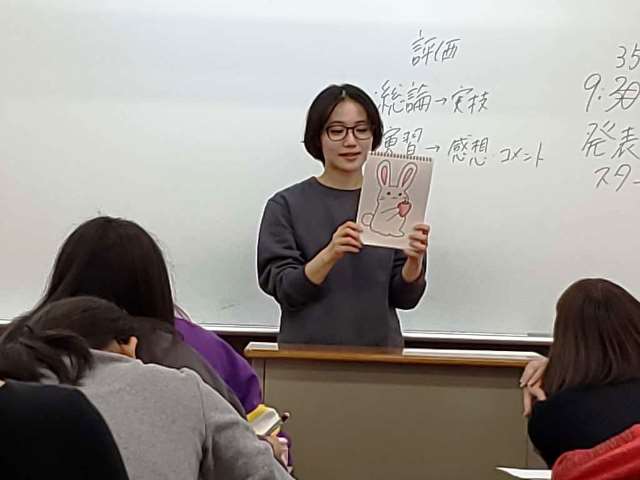 評価
・総論→実技
演習→感想・コメント
35
9:30
発表
スター